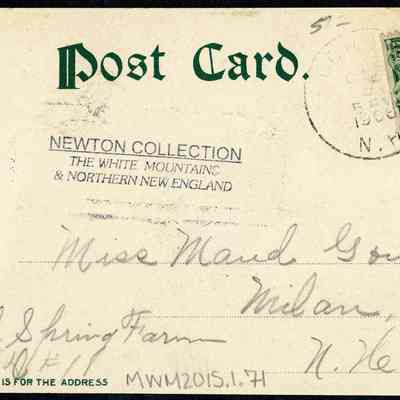 5-
Post Card.
1906
N.H
NEWTON COLLECTION
THE WHITE MOUNTAINS
& NORTHERN NEW ENGLAND
Miss Maud
Milan,
Spring Farm
N. H
IS FOR THE ADDRESS
MWM2015.1.71